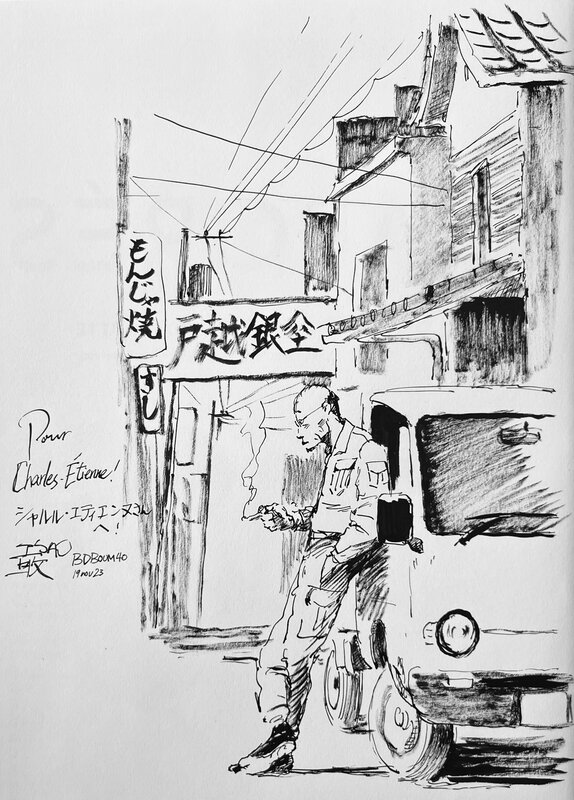 もんじゃ焼
戸越銀座
すし
Pour
Charles-Étienne!
シャルル・エティエンヌさん
へ!
ISAO
BDBOUM40
19 nov 23